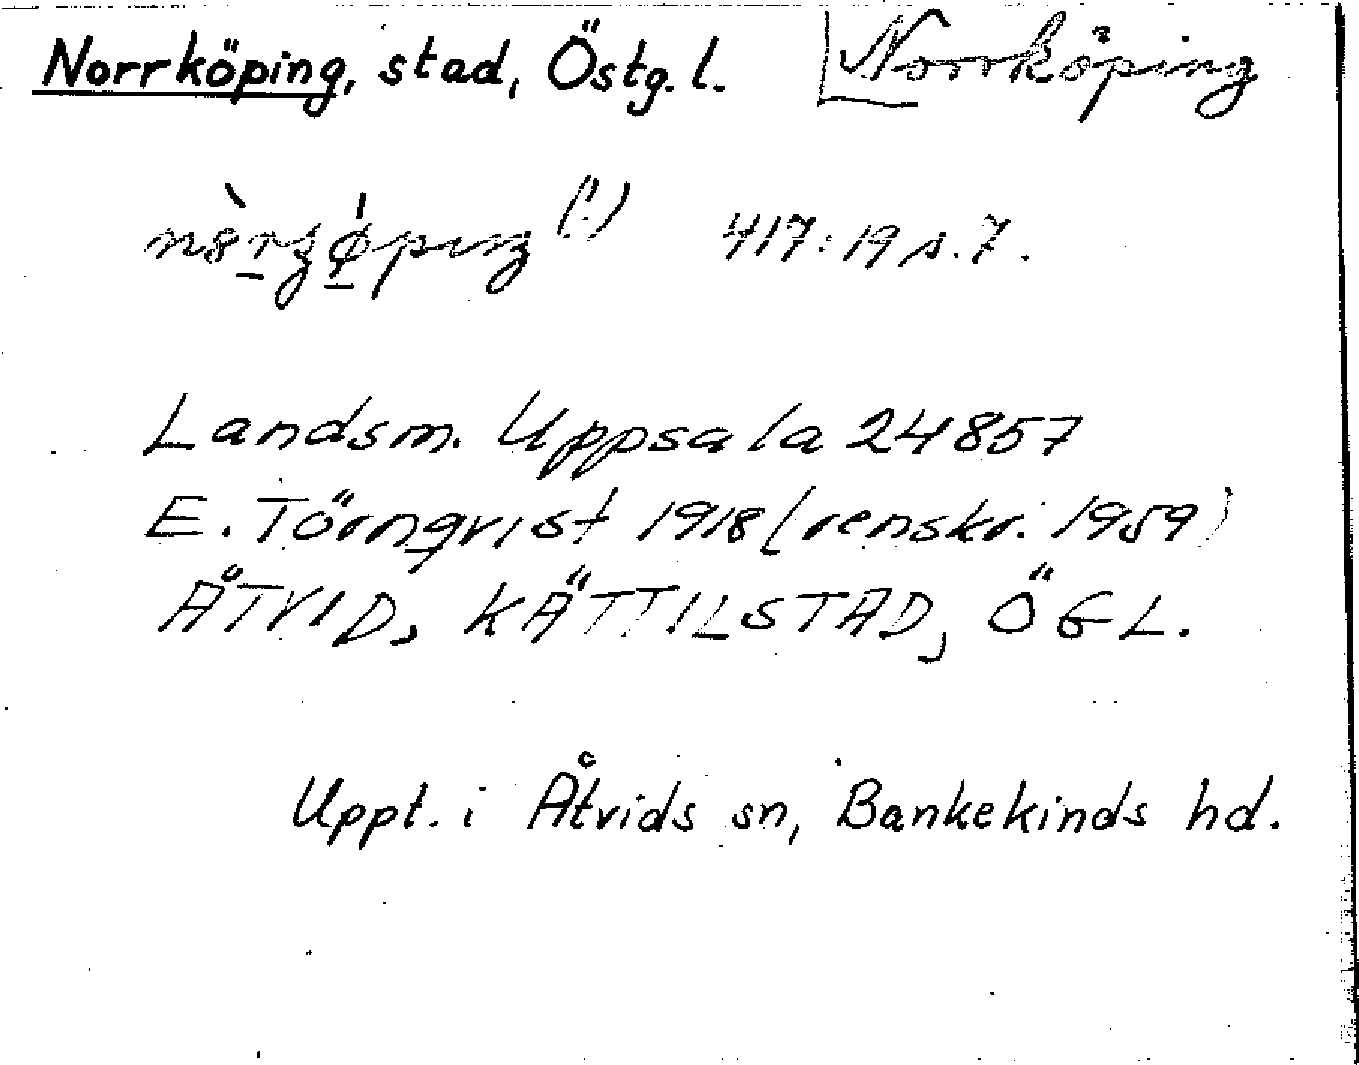 Norrköping, stad, Östg. l. Norrköping
(!) 417:19 s. 7.
Landsm. Uppsala 24857
E. Törnqvist 1918 (renskr. 1959)
ÅTVID, KÄTTILSTAD, ÖGL.
Uppt. i Åtvids sn, Bankekinds hd.